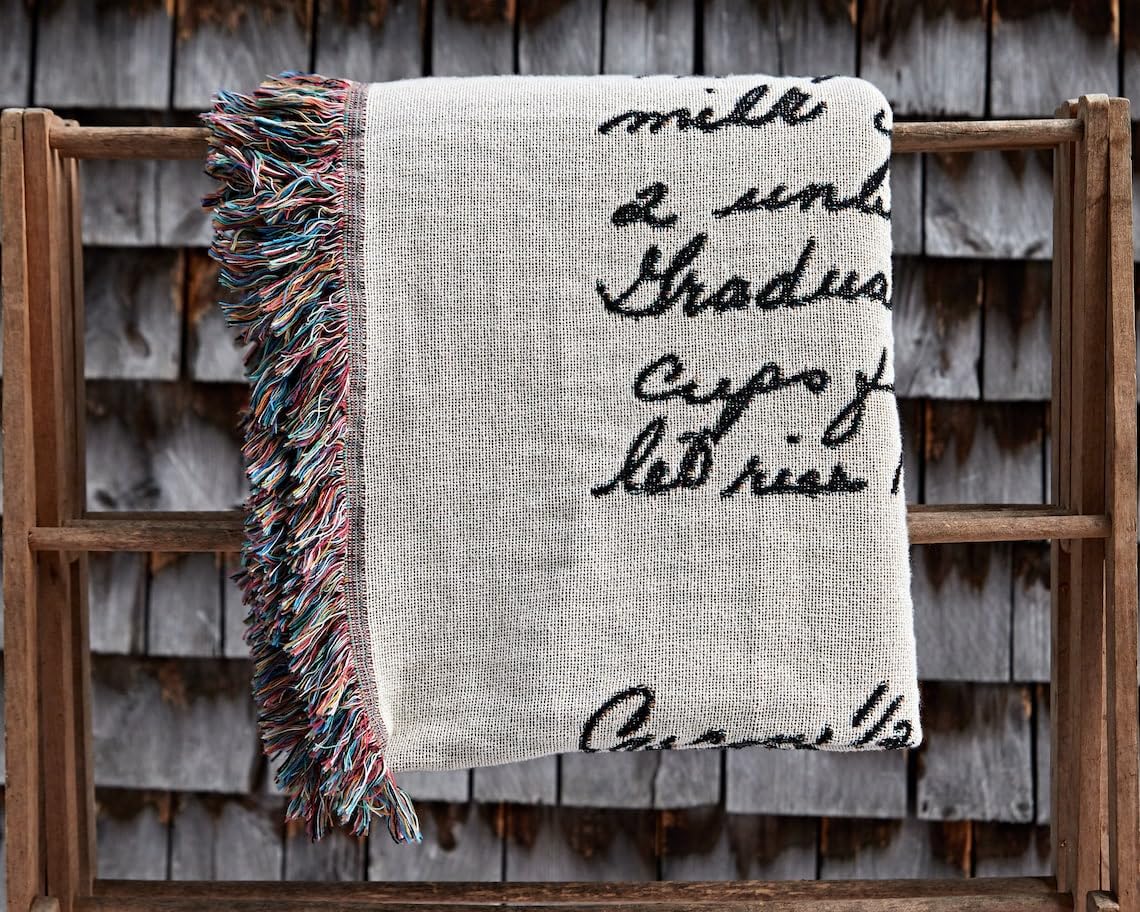 milk
2 unb
Gradua
cups f
let rise
1/2